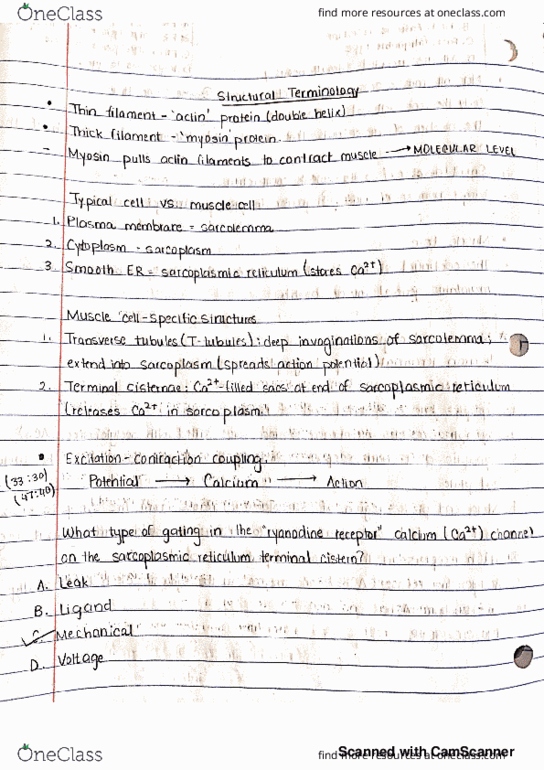 OneClass
find more resources at oneclass.com
Structural Terminology
• Thin filament - 'actin' protein (double helix)
• Thick filament - 'myosin' protein.
- Myosin pulls actin filaments to contract muscle → MOLECULAR LEVEL
Typical cell vs. muscle cell
1. Plasma membrane = sarcolemma
2. Cytoplasm - sarcoplasm
3. Smooth ER = sarcoplasmic reticulum (stores Ca²⁺)
Muscle cell-specific structures
1. Transverse tubules (T-tubules): deep invaginations of sarcolemma;
extend into sarcoplasm (spreads action potential)
2. Terminal cisternae: Ca²⁺-filled sacs at end of sarcoplasmic reticulum
(releases Ca²⁺ in sarcoplasm)
• Excitation-contraction coupling.
(33:30)
(47:40)
Potential → Calcium → Action
What type of gating in the "ryanodine receptor" calcium (Ca²⁺) channel
on the sarcoplasmic reticulum terminal cistern?
A. Leak
B. Ligand
✓ C. Mechanical
D. Voltage
OneClass
find more resources at oneclass.com
Scanned with CamScanner